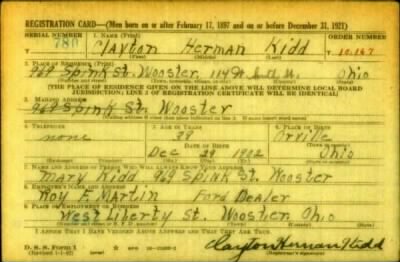 REGISTRATION CARD—(Men born on or after February 17, 1897 and on or before December 31, 1921)
SERIAL NUMBER 1. NAME (Print) ORDER NUMBER
780 Clayton Herman Kidd 10,167
(First) (Middle) (Last)
2. PLACE OF RESIDENCE (Print)
969 Spink St. Wooster, Ohio
(THE PLACE OF RESIDENCE GIVEN ON THE LINE ABOVE WILL DETERMINE LOCAL BOARD
JURISDICTION; LINE 2 OF REGISTRATION CERTIFICATE WILL BE IDENTICAL)
3. MAILING ADDRESS
969 Spink St. Wooster
4. TELEPHONE 5. AGE IN YEARS 6. PLACE OF BIRTH
none 39 Orrville
DATE OF BIRTH (Town or county)
Dec 29 1902 Ohio
7. NAME AND ADDRESS OF PERSON WHO WILL ALWAYS KNOW YOUR ADDRESS
Mary Kidd 969 Spink St. Wooster
8. EMPLOYER'S NAME AND ADDRESS
Roy F. Martin Ford Dealer
9. PLACE OF EMPLOYMENT OR BUSINESS
West Liberty St. Wooster Ohio
I AFFIRM THAT I HAVE VERIFIED ABOVE ANSWERS AND THAT THEY ARE TRUE.
D. S. S. Form 1
(Revised 1-1-42) Clayton Herman Kidd
(Registrant's signature)